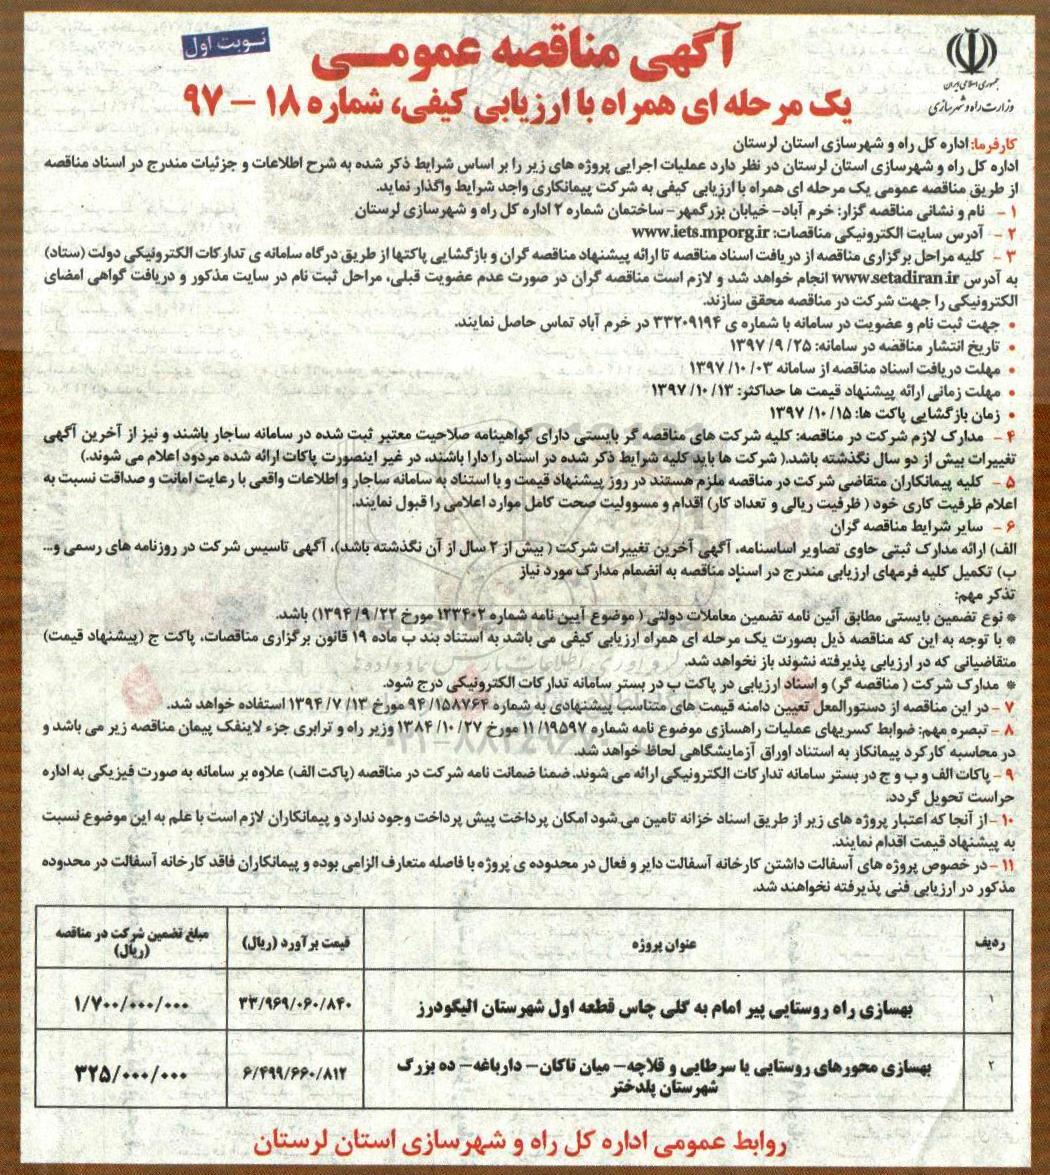 نوبت اول
آگهی مناقصه عمومی
یک مرحله ای همراه با ارزیابی کیفی، شماره ۱۸ – ۹۷
جمهوری اسلامی ایران
وزارت راه و شهرسازی
کارفرما: اداره کل راه و شهرسازی استان لرستان
اداره کل راه و شهرسازی استان لرستان در نظر دارد عملیات اجرایی پروژه های زیر را بر اساس شرایط ذکر شده به شرح اطلاعات و جزئیات مندرج در اسناد مناقصه
از طریق مناقصه عمومی یک مرحله ای همراه با ارزیابی کیفی به شرکت پیمانکاری واجد شرایط واگذار نماید.
۱ - نام و نشانی مناقصه گزار: خرم آباد- خیابان بزرگمهر- ساختمان شماره ۲ اداره کل راه و شهرسازی لرستان
۲ - آدرس سایت الکترونیکی مناقصات: www.iets.mporg.ir
۳ - کلیه مراحل برگزاری مناقصه از دریافت اسناد مناقصه تا ارائه پیشنهاد مناقصه گران و بازگشایی پاکتها از طریق درگاه سامانه ی تدارکات الکترونیکی دولت (ستاد)
به آدرس www.setadiran.ir انجام خواهد شد و لازم است مناقصه گران در صورت عدم عضویت قبلی، مراحل ثبت نام در سایت مذکور و دریافت گواهی امضای
الکترونیکی را جهت شرکت در مناقصه محقق سازند.
• جهت ثبت نام و عضویت در سامانه با شماره ی ۳۳۲۰۹۱۹۴ در خرم آباد تماس حاصل نمایند.
• تاریخ انتشار مناقصه در سامانه: ۱۳۹۷/۹/۲۵
• مهلت دریافت اسناد مناقصه از سامانه ۱۳۹۷/۱۰/۰۳
• مهلت زمانی ارائه پیشنهاد قیمت ها حداکثر: ۱۳۹۷/۱۰/۱۳
• زمان بازگشایی پاکت ها: ۱۳۹۷/۱۰/۱۵
۴ - مدارک لازم شرکت در مناقصه: کلیه شرکت های مناقصه گر بایستی دارای گواهینامه صلاحیت معتبر ثبت شده در سامانه ساجار باشند و نیز از آخرین آگهی
تغییرات بیش از دو سال نگذشته باشد.( شرکت ها باید کلیه شرایط ذکر شده در اسناد را دارا باشند، در غیر اینصورت پاکات ارائه شده مردود اعلام می شوند.)
۵ - کلیه پیمانکاران متقاضی شرکت در مناقصه ملزم هستند در روز پیشنهاد قیمت و با استناد به سامانه ساجار و اطلاعات واقعی با رعایت امانت و صداقت نسبت به
اعلام ظرفیت کاری خود ( ظرفیت ریالی و تعداد کار) اقدام و مسوولیت صحت کامل موارد اعلامی را قبول نمایند.
۶ - سایر شرایط مناقصه گران
الف) ارائه مدارک ثبتی حاوی تصاویر اساسنامه، آگهی آخرین تغییرات شرکت ( بیش از ۲ سال از آن نگذشته باشد)، آگهی تاسیس شرکت در روزنامه های رسمی و...
ب) تکمیل کلیه فرمهای ارزیابی مندرج در اسناد مناقصه به انضمام مدارک مورد نیاز
تذکر مهم:
* نوع تضمین بایستی مطابق آئین نامه تضمین معاملات دولتی ( موضوع آیین نامه شماره ۱۲۳۴۰۲ مورخ ۱۳۹۴/۹/۲۲) باشد.
* با توجه به این که مناقصه ذیل بصورت یک مرحله ای همراه ارزیابی کیفی می باشد به استناد بند ب ماده ۱۹ قانون برگزاری مناقصات، پاکت ج (پیشنهاد قیمت)
متقاضیانی که در ارزیابی پذیرفته نشوند باز نخواهد شد.
* مدارک شرکت ( مناقصه گر) و اسناد ارزیابی در پاکت ب در بستر سامانه تدارکات الکترونیکی درج شود.
۷ - در این مناقصه از دستورالعمل تعیین دامنه قیمت های متناسب پیشنهادی به شماره ۹۴/۱۵۸۷۶۴ مورخ ۱۳۹۴/۷/۱۳ استفاده خواهد شد.
۸ - تبصره مهم: ضوابط کسریهای عملیات راهسازی موضوع نامه شماره ۱۱/۱۹۵۹۷ مورخ ۱۳۸۴/۱۰/۲۷ وزیر راه و ترابری جزء لاینفک پیمان مناقصه زیر می باشد و
در محاسبه کارکرد پیمانکار به استناد اوراق آزمایشگاهی لحاظ خواهد شد.
۹ - پاکات الف و ب و ج در بستر سامانه تدارکات الکترونیکی ارائه می شوند. ضمنا ضمانت نامه شرکت در مناقصه (پاکت الف) علاوه بر سامانه به صورت فیزیکی به اداره
حراست تحویل گردد.
۱۰ - از آنجا که اعتبار پروژه های زیر از طریق اسناد خزانه تامین می شود امکان پرداخت پیش پرداخت وجود ندارد و پیمانکاران لازم است با علم به این موضوع نسبت
به پیشنهاد قیمت اقدام نمایند.
۱۱ - در خصوص پروژه های آسفالت داشتن کارخانه آسفالت دایر و فعال در محدوده ی پروژه با فاصله متعارف الزامی بوده و پیمانکاران فاقد کارخانه آسفالت در محدوده
مذکور در ارزیابی فنی پذیرفته نخواهند شد.
ردیف عنوان پروژه قیمت برآورد (ریال) مبلغ تضمین شرکت در مناقصه (ریال)
۱ بهسازی راه روستایی پیر امام به گلی چاس قطعه اول شهرستان الیگودرز ۳۳/۹۶۹/۰۶۰/۸۴۰ ۱/۷۰۰/۰۰۰/۰۰۰
۲ بهسازی محورهای روستایی یا سرطایی و قلاچه- میان تاکان- دارباغه- ده بزرگ
شهرستان پلدختر ۶/۴۹۹/۶۶۰/۸۱۲ ۳۲۵/۰۰۰/۰۰۰
روابط عمومی اداره کل راه و شهرسازی استان لرستان